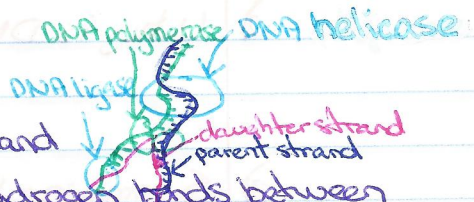 DNA polymerase DNA helicase
DNA ligase
and daughter strand
parent strand
hydrogen bonds between